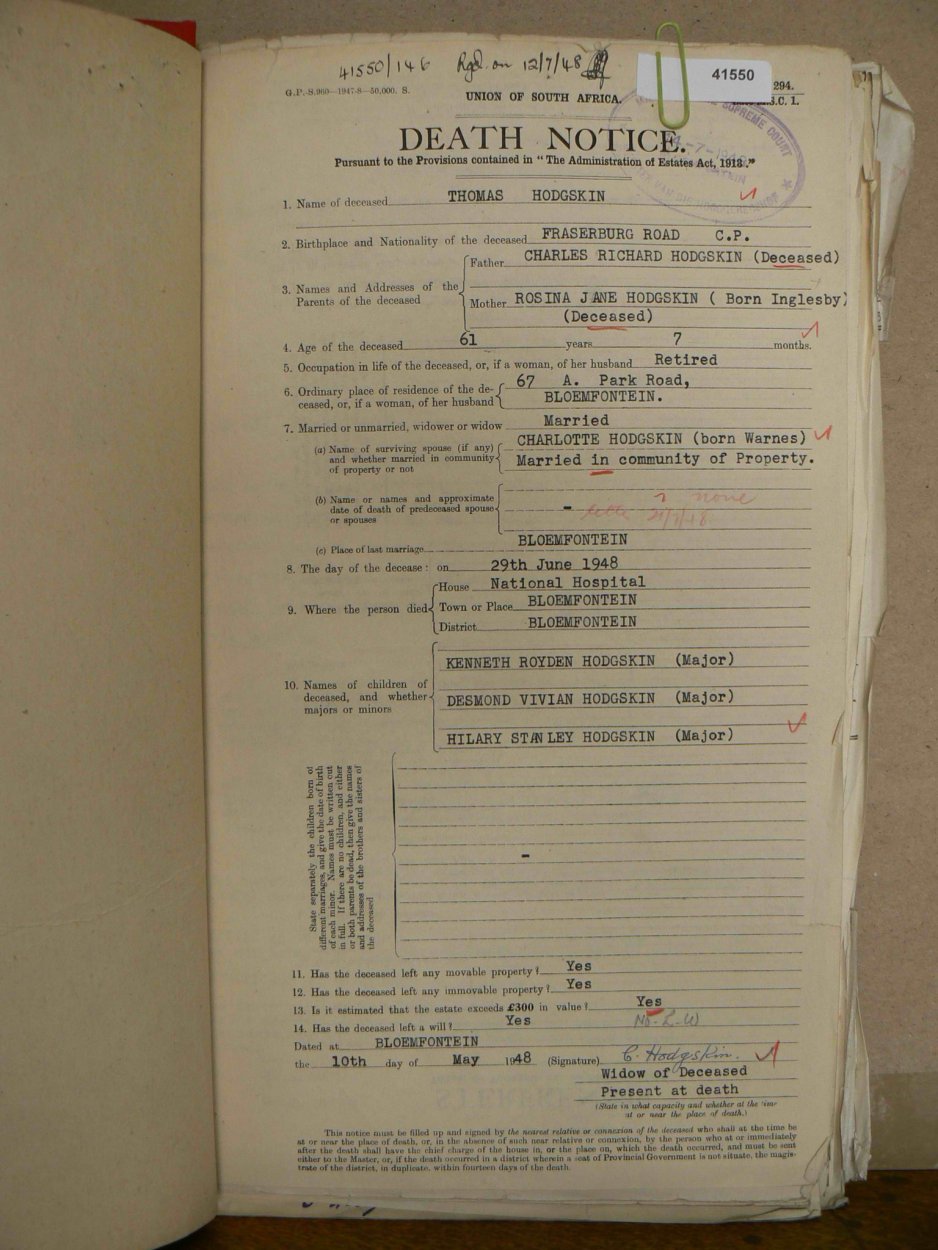 41550/146 Rgd. on 12/7/48
41550
294.
G.P.-S.960—1947-8—50,000. S.
UNION OF SOUTH AFRICA.
M.S.C. 1.
SUPREME COURT
DEATH NOTICE.
Pursuant to the Provisions contained in "The Administration of Estates Act, 1913."
1. Name of deceased THOMAS HODGSKIN
2. Birthplace and Nationality of the deceased FRASERBURG ROAD C.P.
3. Names and Addresses of the Parents of the deceased
Father CHARLES RICHARD HODGSKIN (Deceased)
Mother ROSINA JANE HODGSKIN ( Born Inglesby)
(Deceased)
4. Age of the deceased 61 years 7 months.
5. Occupation in life of the deceased, or, if a woman, of her husband Retired
6. Ordinary place of residence of the de- 67 A. Park Road,
ceased, or, if a woman, of her husband BLOEMFONTEIN.
7. Married or unmarried, widower or widow Married
(a) Name of surviving spouse (if any) CHARLOTTE HODGSKIN (born Warnes)
and whether married in community Married in community of Property.
of property or not
(b) Name or names and approximate ? none
date of death of predeceased spouse -
or spouses
(c) Place of last marriage BLOEMFONTEIN
8. The day of the decease: on 29th June 1948
9. Where the person died
House National Hospital
Town or Place BLOEMFONTEIN
District BLOEMFONTEIN
10. Names of children of
deceased, and whether
majors or minors
KENNETH ROYDEN HODGSKIN (Major)
DESMOND VIVIAN HODGSKIN (Major)
HILARY STANLEY HODGSKIN (Major)
State separately the children born of
different marriages, and give the date of birth
of each minor. Names must be written out
in full. If there are no children, and either
or both parents be dead, then give the names
and addresses of the brothers and sisters of
the deceased
-
11. Has the deceased left any movable property? Yes
12. Has the deceased left any immovable property? Yes
13. Is it estimated that the estate exceeds £300 in value? Yes
14. Has the deceased left a will? Yes No-L-W
Dated at BLOEMFONTEIN
the 10th day of May 1948 (Signature) C. Hodgskin.
Widow of Deceased
Present at death
(State in what capacity and whether at the time
at or near the place of death.)
This notice must be filled up and signed by the nearest relative or connexion of the deceased who shall at the time be
at or near the place of death, or, in the absence of such near relative or connexion, by the person who at or immediately
after the death shall have the chief charge of the house in, or the place on, which the death occurred, and must be sent
either to the Master, or, if the death occurred in a district wherein a seat of Provincial Government is not situate, the magis-
trate of the district, in duplicate, within fourteen days of the death.